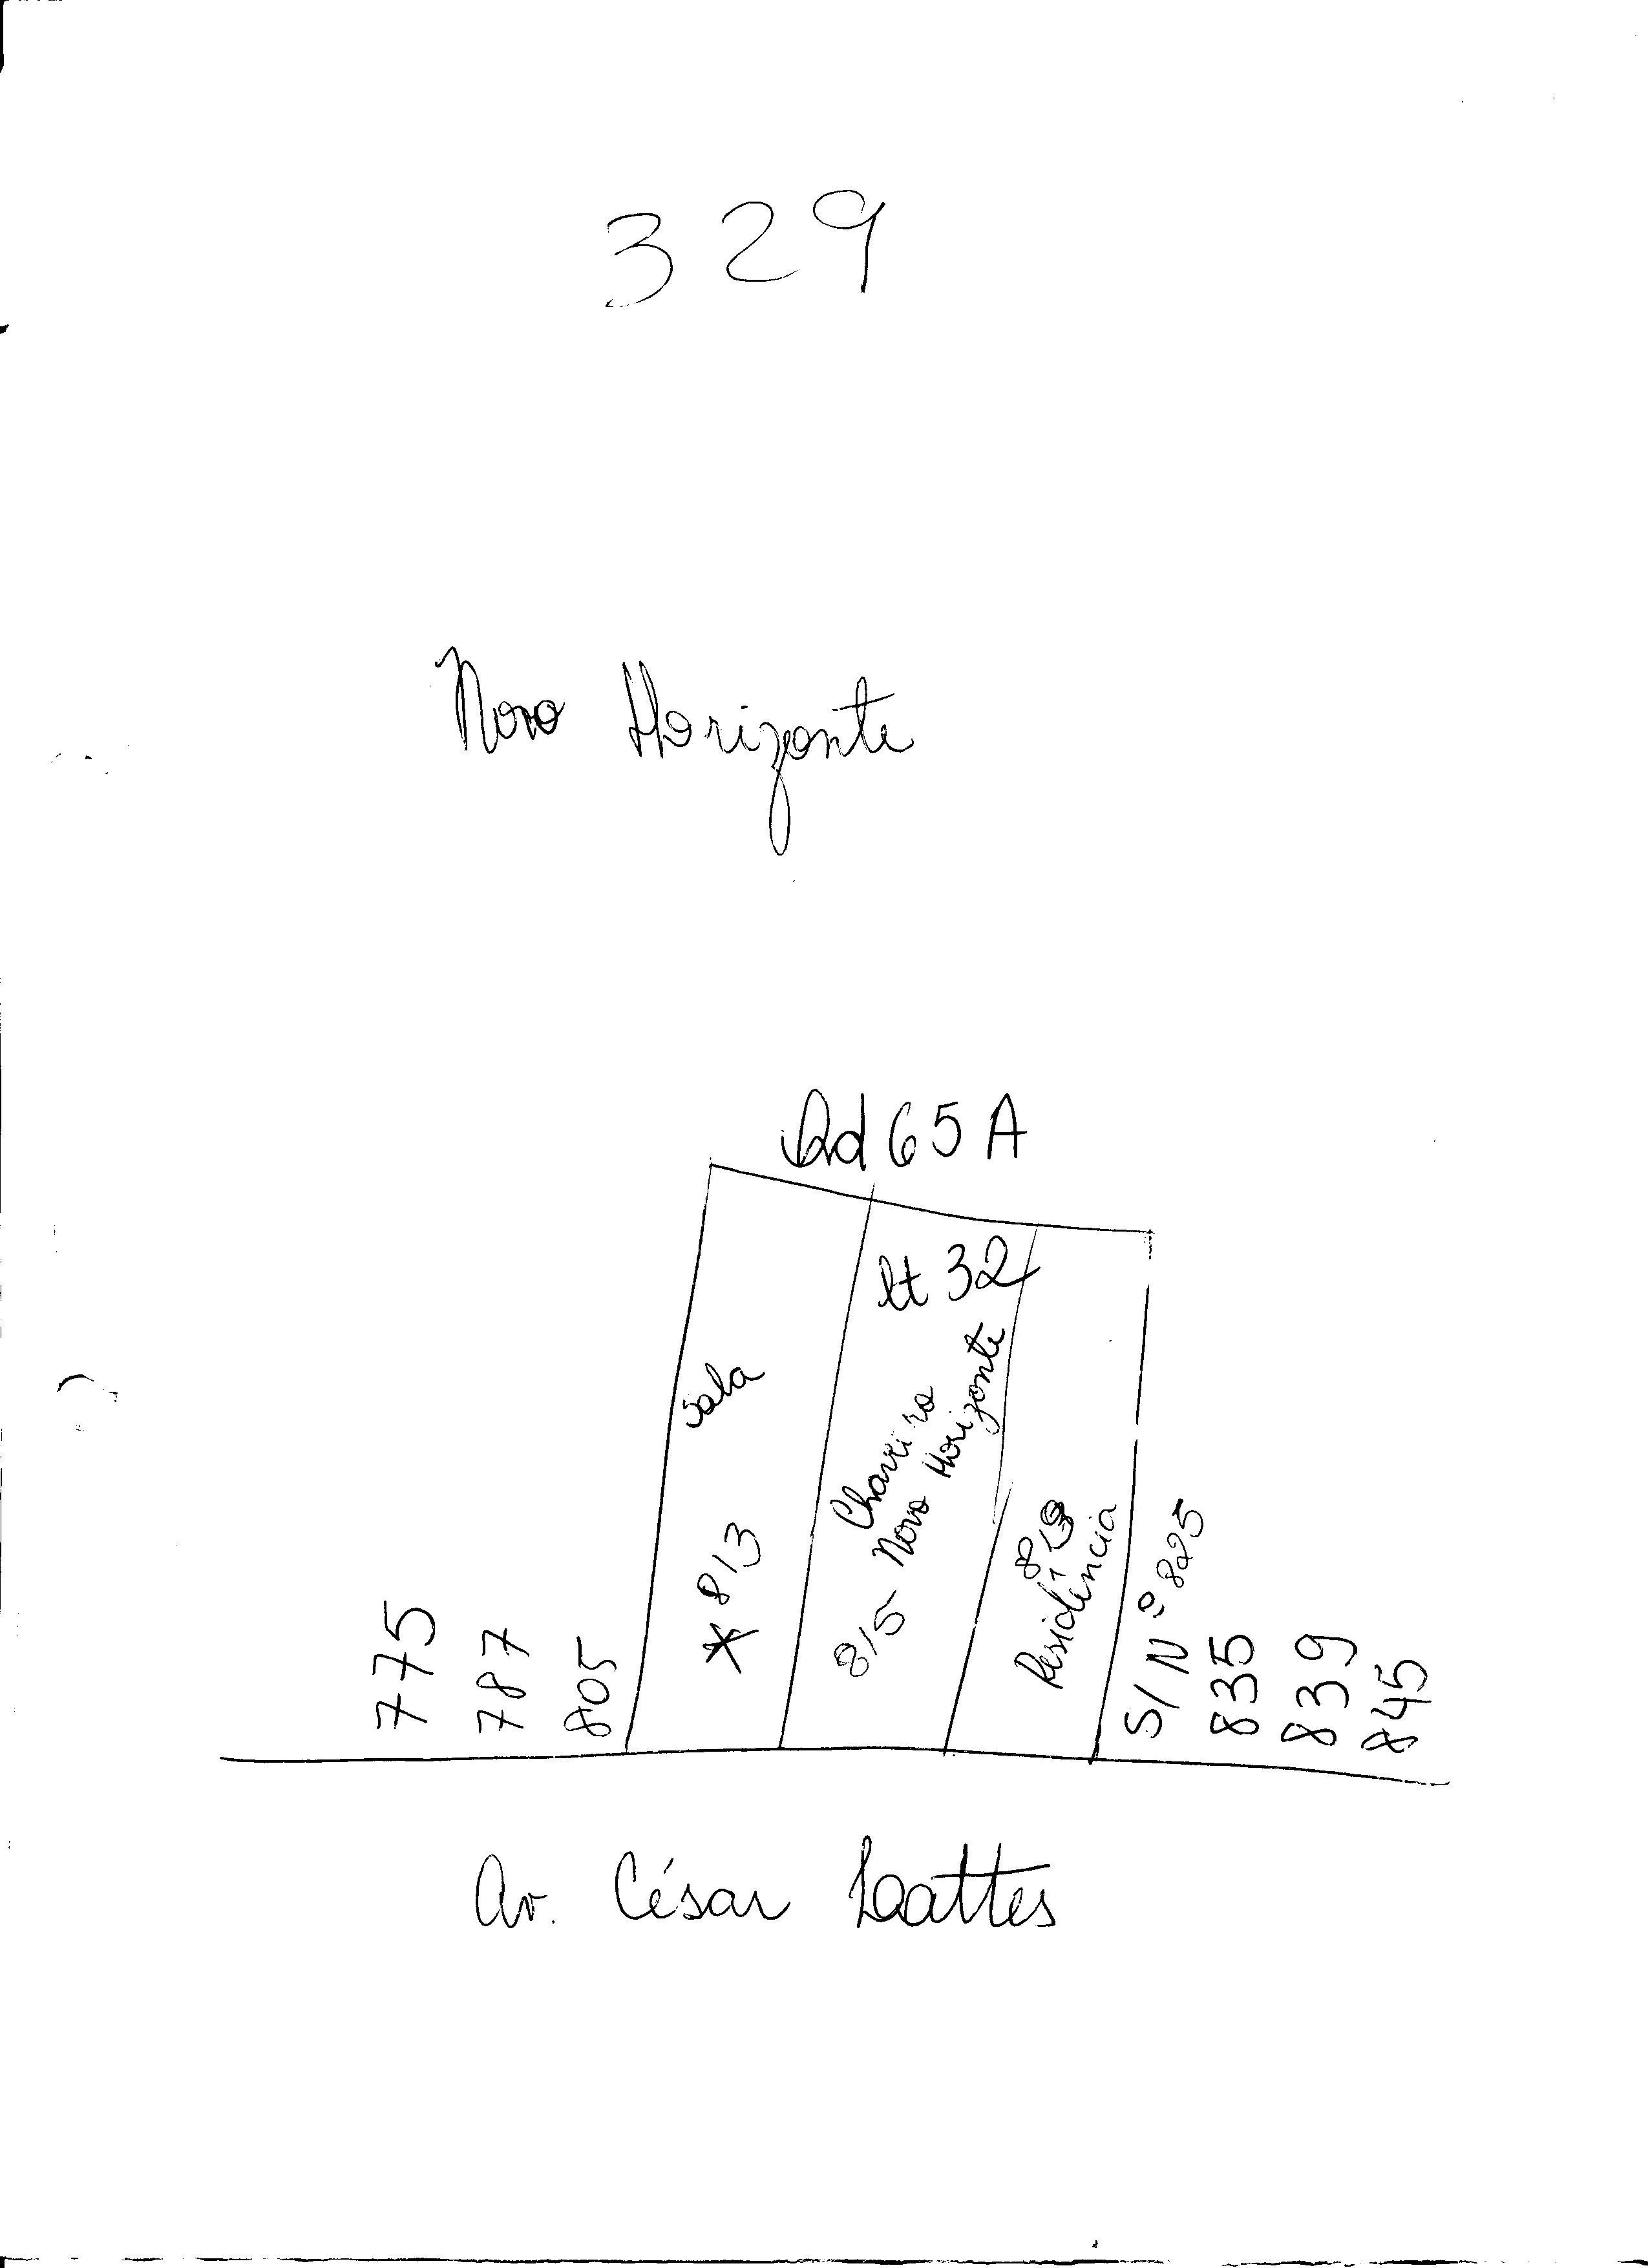 329
Novo Horizonte
Qd 65 A
lt 32
Sala
* 813
Chaveiro
Novo Horizonte
815
Residência
775
787
805
S/Nº 825
835
839
845
Av. César Lattes